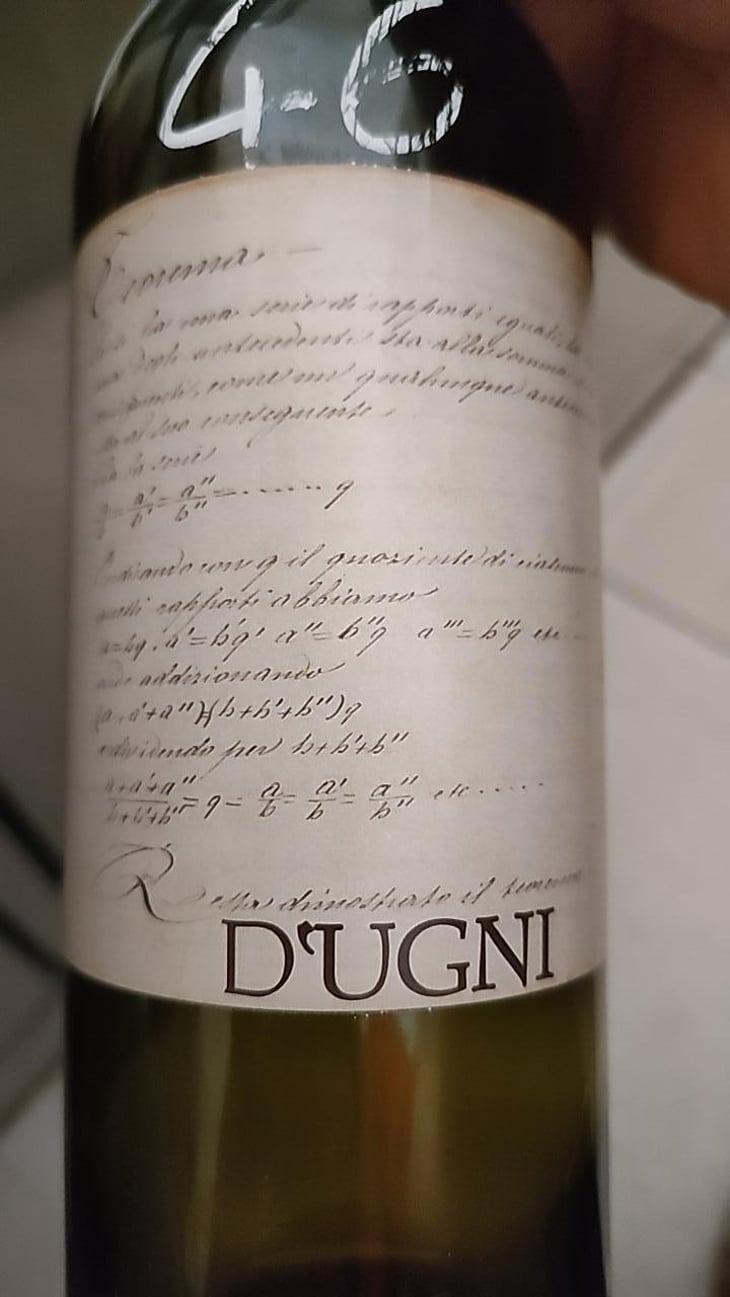 4-6
Teorema. —
ha una serie di rapporti eguali, la
degli antecedenti sta alla somma
come un qualunque
al suo conseguente.
la serie
= a'/b' = a''/b'' = ....... q
con q il quoziente di
rapporti abbiamo
a=bq. a'=b'q' a''=b''q a'''=b'''q etc...
addizionando
(a+a'+a'')=(b+b'+b'')q
dividendo per b+b'+b''
a+a'+a''/b+b'+b'' = q = a/b = a'/b = a''/b'' etc.....
Resta dimostrato il teorema
D'UGNI